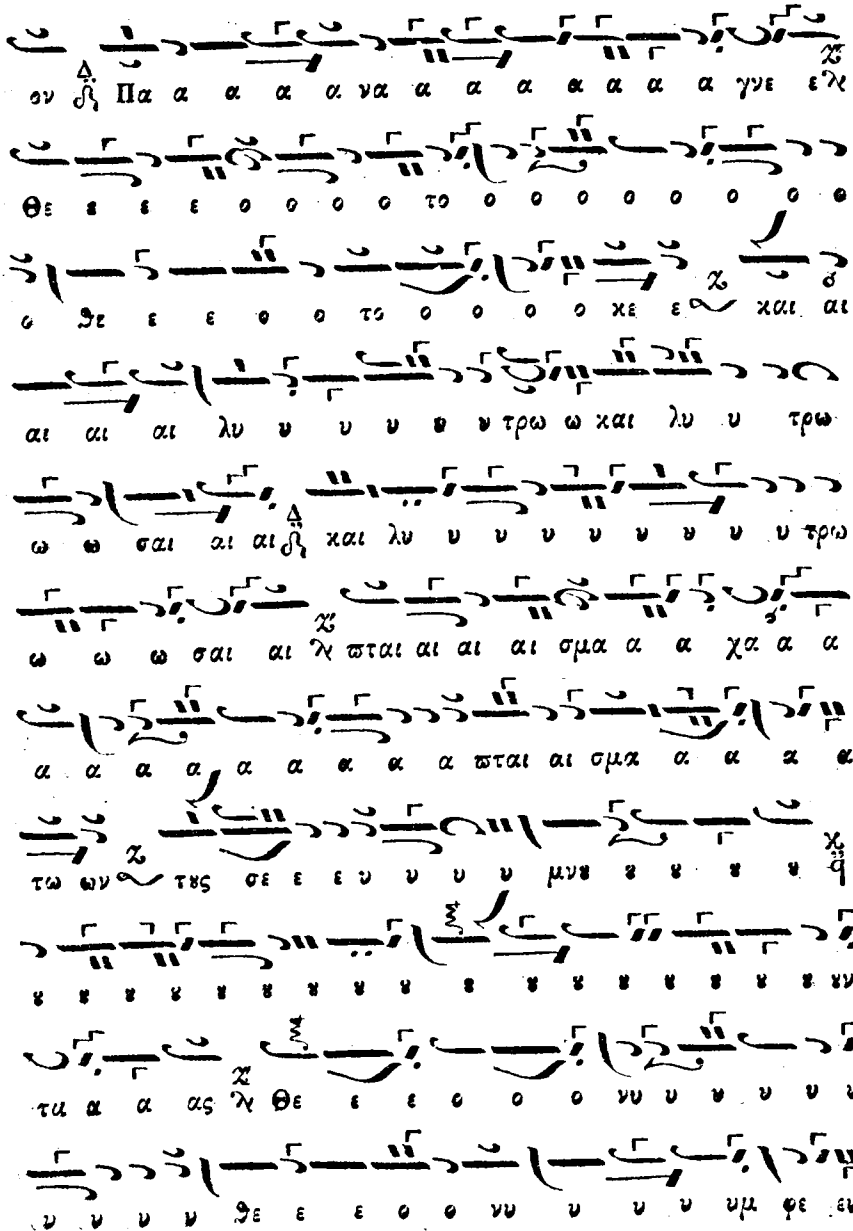 ον Δ Πα α α α α να α α α α α α α γνε ε
Θε ε ε ε ο ο ο ο το ο ο ο ο ο ο ο ο
ο θε ε ε ο ο το ο ο ο ο κε ε και αι
αι αι αι λυ υ υ υ υ υ τρω ω και λυ υ τρω
ω ω σαι αι αι Δ και λυ υ υ υ υ υ υ υ υ τρω
ω ω ω σαι αι ϖται αι αι αι σμα α α χα α α
α α α α α α α α α ϖται αι σμα α α α α
τω ων τȣς σε ε ε υ υ υ υ μνȣ ȣ ȣ ȣ ȣ
ȣ ȣ ȣ ȣ ȣ ȣ ȣ ȣ ȣ ȣ ȣ ȣ ȣ ȣ ȣ ȣ ȣν
τα α α ας Θε ε ε ο ο ο νυ υ υ υ υ υ
υ υ υ υ θε ε ε ο ο νυ υ υ υ υμ φε ευ